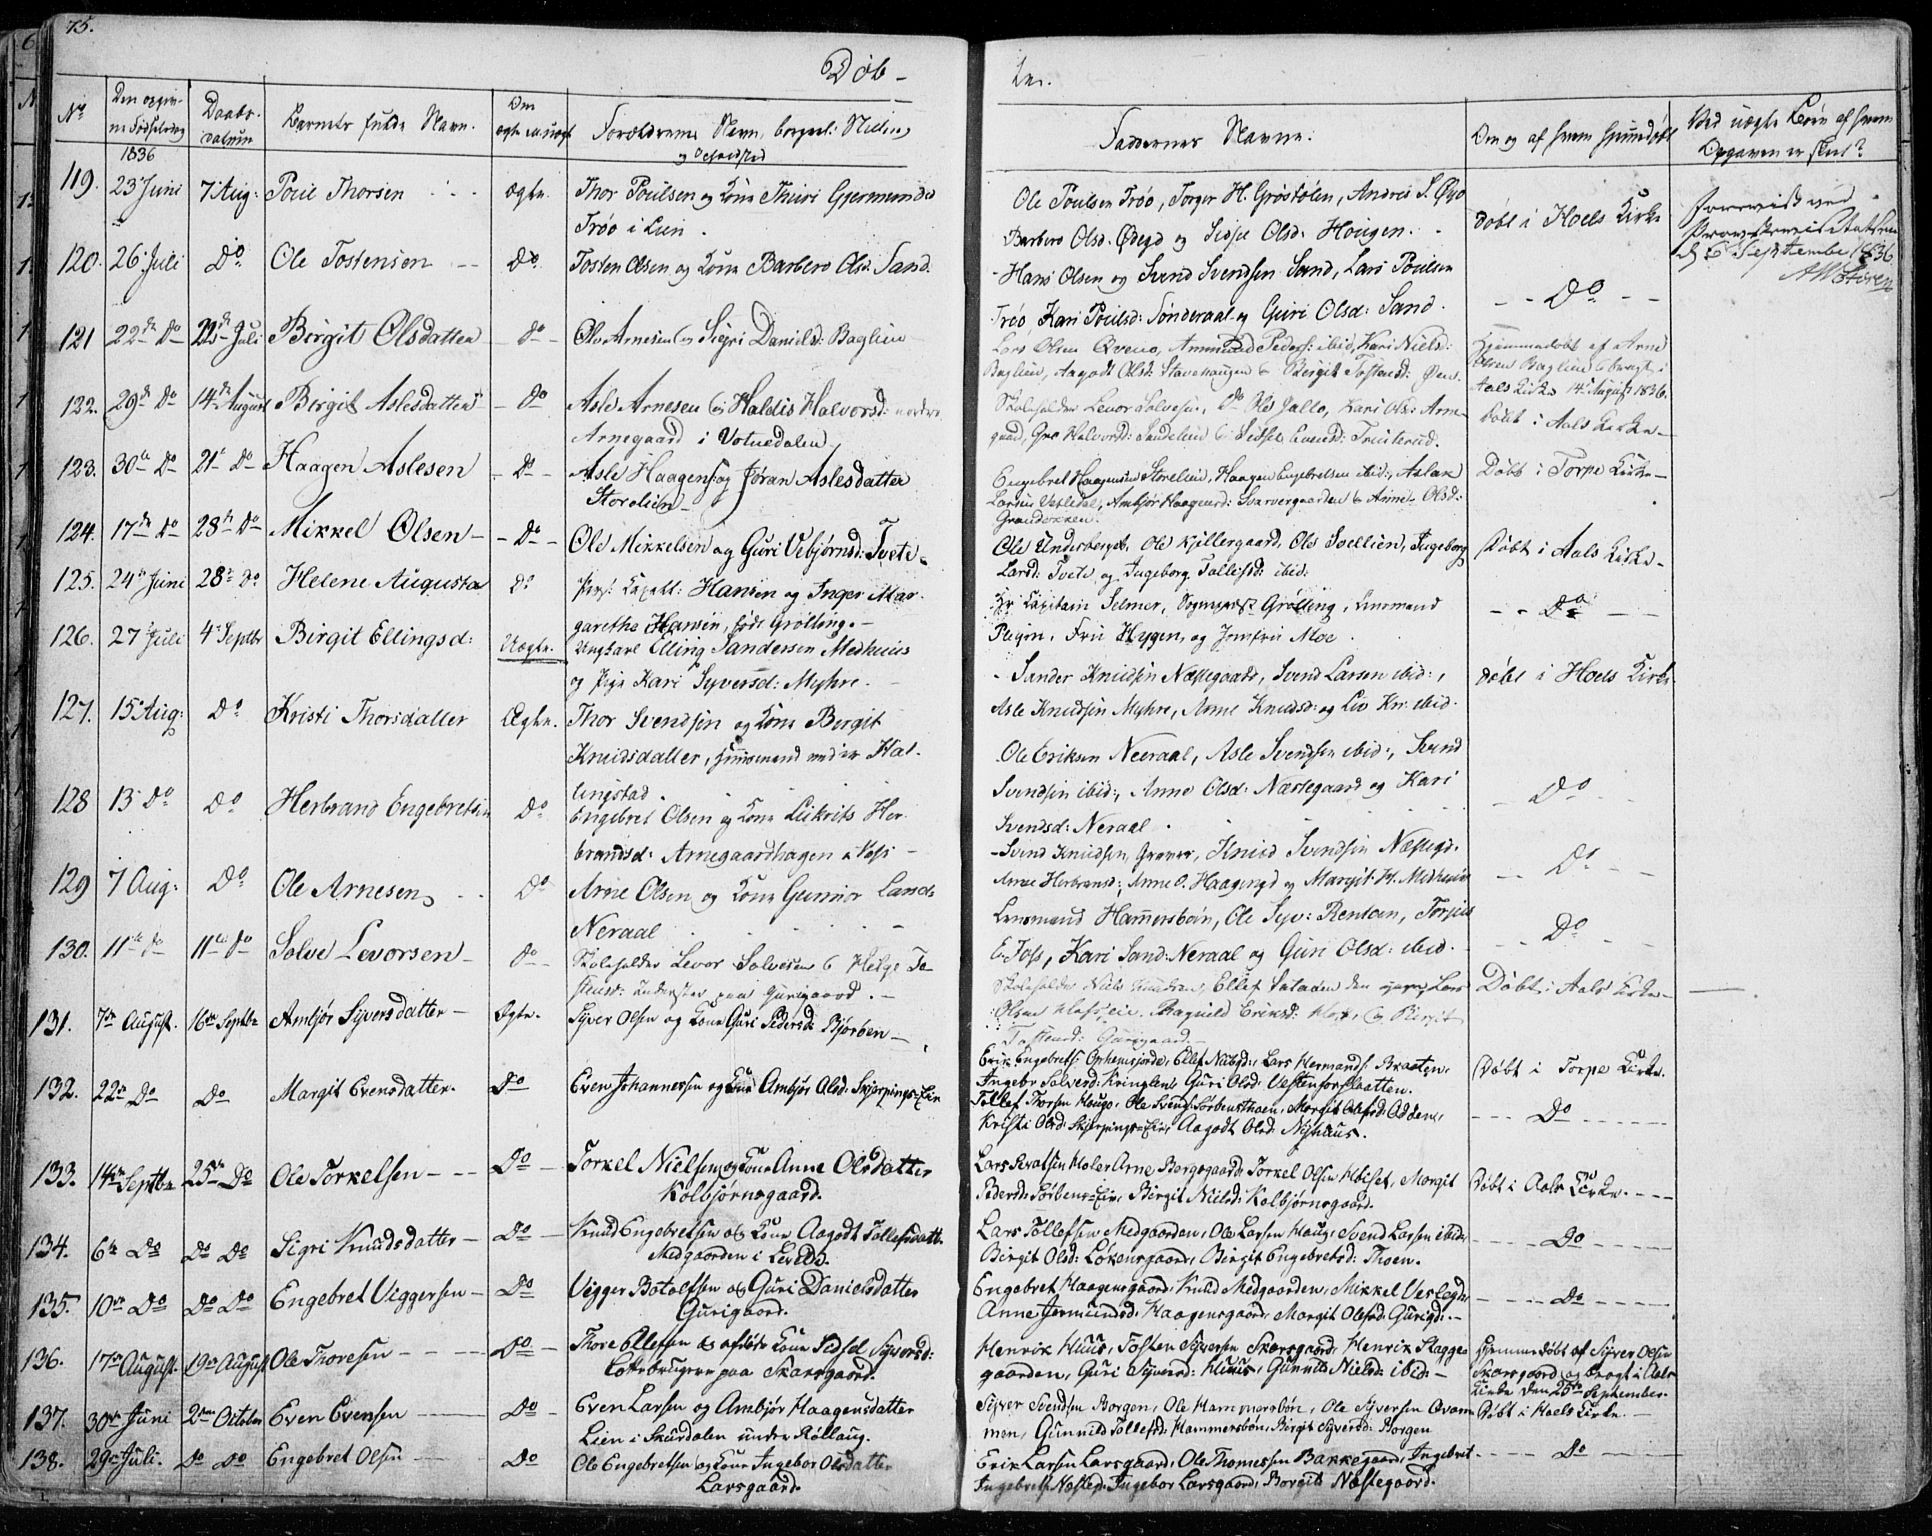 75.
Døb-
te.
No
Den opgiv-
ne Fødselsdag
Daabs-
datum
Barnets fulde Navn.
Om
ægte ell. uægte
Forældrenes Navn, borgerl: Stilling
og Opholdsted
Faddernes Navne.
Om og af hvem hjemmedøbt
Ved uægte Børn af hvem
Opgaven er skeet?
1836
119. 23 Juni 7 Aug: Poul Thorsen ægte. Thor Poulsen og Kone Thuri Gjermundsd
Trøo i Lien.
Ole Poulsen Trøo, Torger H. Grøstølen, Andris S. Øyo
Barbero Olsd. Ødegd og Sidsel Olsd. Hougen.
døbt i Hoels Kirke
Foreviist ved
Provsteivisitatsen
d 6 September 1836
120. 26 Juli Do Ole Tostensen Do Tosten Olsen og Kone Barbero Olsd. Sand.
Hans Olsen og Svend Svendsen Sand, Lars Poulsen
Trøo, Kari Poulsd: Sønderaal og Guri Olsd: Sand.
Do
121 22de Do 22de Juli Birgit Olsdatter Do Ole Arnesen og Sigri Daniels: Baglien
Lars Olsen Qveno, Ammund Peders: ibid, Kari Niels:
Baglien, Aagodt Olsd: Stavehaugen & Birgit Tostensd: Øen.
Hjemmedøbt af Arne
Olsen Baglien & bragt i
Aals Kirke 14de August 1836.
122. 29de Do 14de August Birgit Aslesdatter Do Asle Arnesen og Haldis Halvorsd: nordre
Arnegaard i Votnedalen
Skoleholder Levor Solvesen, Do Ole Gallo, Kari Olsd: Arne-
gaard, Gro Halvorsd: Sundelien & Sidsel Evensd: Trinterud.
Døbt i Aals Kirke
123. 30te Do 21de Do Haagen Aslesen Do Asle Haagens: og Jøran Aslesdatter
Storelien
Engebret Haagensen Storelien, Haagen Engebretsen ibid:, Aslak
Larsen Vesledal, Ambjør Haagensd: Svarvergaarden & Anne Olsd:
Grandokken.
Døbt i Torpe Kirke
124. 17de Do 28de Do Mikkel Olsen Do Ole Mikkelsen og Guri Vebjørnsd: Tvete
Ole Underberget, Ole Kjillergaard, Ole Svellien, Ingeborg
Larsd: Tvete og Ingeborg Tollefsd: ibid:
Døbt i Aals Kirke
125. 24de Juni 28de Do Helene Augusta Do Pers: Capell: Hansen og Inger Mar-
garethe Hansen, født Grølling.
Hr Kapitain Selmer, Sogneprest Grølling, Lensmand
Plejm, Frue Hygen, og Jomfru Moe.
Do
126. 27 Juli 4de Septbr Birgit Ellingsd: Uægte. Ungkarl Elling Sandersen Medhuus
og Pige Kari Syversd: Myhre.
Sander Knudsen Næstegaard, Svend Larsen ibid:,
Asle Knudsen Myhre, Anne Knudsd: og Liv Kn: ibid.
døbt i Hoels Kirke
127. 15 Aug: Do Kristi Thorsdatter Ægte. Thor Svendsen og Kone Birgit
Knudsdatter, Huusmand under Hal-
lingstad.
Ole Eriksen Neeraal, Asle Svendsen ibid:, Svend
Svendsen ibid:, Anne Olsd: Næstegaard og Kari
Svendsd: Neraal.
Do
128 13 Do Do Herbrand Engebretsen Do Engebret Olsen og Kone Liikrits Her-
brandsd: Arnegaardhagen
Svend Knudsen, Graver, Knud Svendsen Næstegd.
Arne Herbrands:, Anne O. Haagensgd og Margit H. Medhuus
Do
129 7 Aug: Do Ole Arnesen Do Arne Olsen og Kone Gunnor Lands
Neraal
Lensmand Hammersbøn, Ole Syv: Rentoen, Torjus
E. Foss, Kari Sand: Neraal og Guri Olsd: ibid.
Do
130. 11te Do 11te Do Solve Levorsen Do Skoleholder Levor Solvesen & Helge To-
stensd: Inderster paa Gurigaard.
Skoleholder Niels Knudsen, Ellef Sataden den yngre, Lars
Olsen, Ragnild Eriksd: & Birgit
Tostensd: Gurigaard.
Døbt i Aals Kirke
131. 7de August. 16de Septbr Ambjør Syversdatter Ægte. Syver Olsen og Kone Guri Pedersd: Bjørben
Erik Engebrets: Opheimsjorde, Ellef Nielsd:, Lars Hermands: Braaten,
Ingebr Solversd: Kringlen, Guri Olsd: Vestenforslaatten.
Døbt i Torpe Kirke.
132. 22de Do Do Margit Evensdatter. Do Even Johannessen og Kone Ambjør Olsd: Skjerpings-Eie
Tollef Thorsen Haugo, Ole Svends: Sørbensthoen, Margit Olsd: Odden,
Kristi Olsd: Skjerpings-Eie, Aagodt Olsd: Nyhuus.
Do
133. 14de Septbr 25de Do Ole Torkelsen Do Torkel Nielsen og Kone Anne Olsdatter
Kolbjørnsgaard.
Lars Sevatsen Holer, Arne Bergsgaard, Torkel Olsen Høiset, Margit
Pedersd: Sørbens-Eie, Birgit Nielsd: Kolbjørnsgaard.
Døbt i Aals Kirke.
134. 6te Do Do Do Sigri Knudsdatter Do Knud Engebretsen og Kone Aagodt Tollefsdatt:
Medgaarden i Leveld.
Lars Tollefsen Medgaarden, Ole Larsen Haug, Svend Larsen ibid:
Birgit Olsd: Løkensgaard, Birgit Engebretsd: Thoen.
Do
135. 10de Do Do Do Engebret Viggersen Do Vigger Botolfsen og Guri Danielsdatter
Gurigaard.
Engebret Haagensgaard, Knud Medgaarden, Mikkel Veslegd,
Anne Jermundsd: Haagensgaard, Margit Olsd: Gurigd.
Do
136. 17de August. 19de August Ole Thoresen Do Thore Ellefsen og afløste Kone Sidsel Syversd:
Lottebrugere paa Skarsgaard.
Henrik Huus, Tosten Syversen Skarsgaard, Henrik Skagge-
gaarden, Guri Syversd: Huus, Gunnild Nielsd: ibid.
Hjemmedøbt af Syver Olsen
Skarsgaard og bragt i Aals
Kirke den 25de September.
137. 30de Juni 2den October Even Evensen Do Even Larsen og Ambjør Haagensdatter
Lien i Skurdalen under Rollaug.
Syver Svendsen Borgen, Ole Hammersbøn, Ole Syversen Qvam-
men, Gunnild Tollefsd: Hammersbøn, Birgit Syversd: Borgen
Døbt i Hoels Kirke.
138. 29de Juli. Do Do Engebret Olsen Do Ole Engebretsen og Kone Ingebor Olsdatter
Larsgaard.
Erik Larsen Larsgaard, Ole Thomessen Bakkegaard, Ingebret
Ingebrets: Næsteg: Ingebor Larsgaard, Borgit Næstegaard.
Do